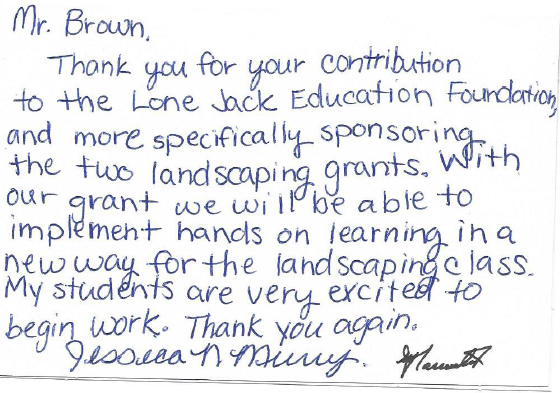 Mr. Brown,
Thank you for your contribution
to the Lone Jack Education Foundation,
and more specifically sponsoring
the two landscaping grants. With
our grant we will be able to
implement hands on learning in a
new way for the landscaping class.
My students are very excited to
begin work. Thank you again.
Jessica N